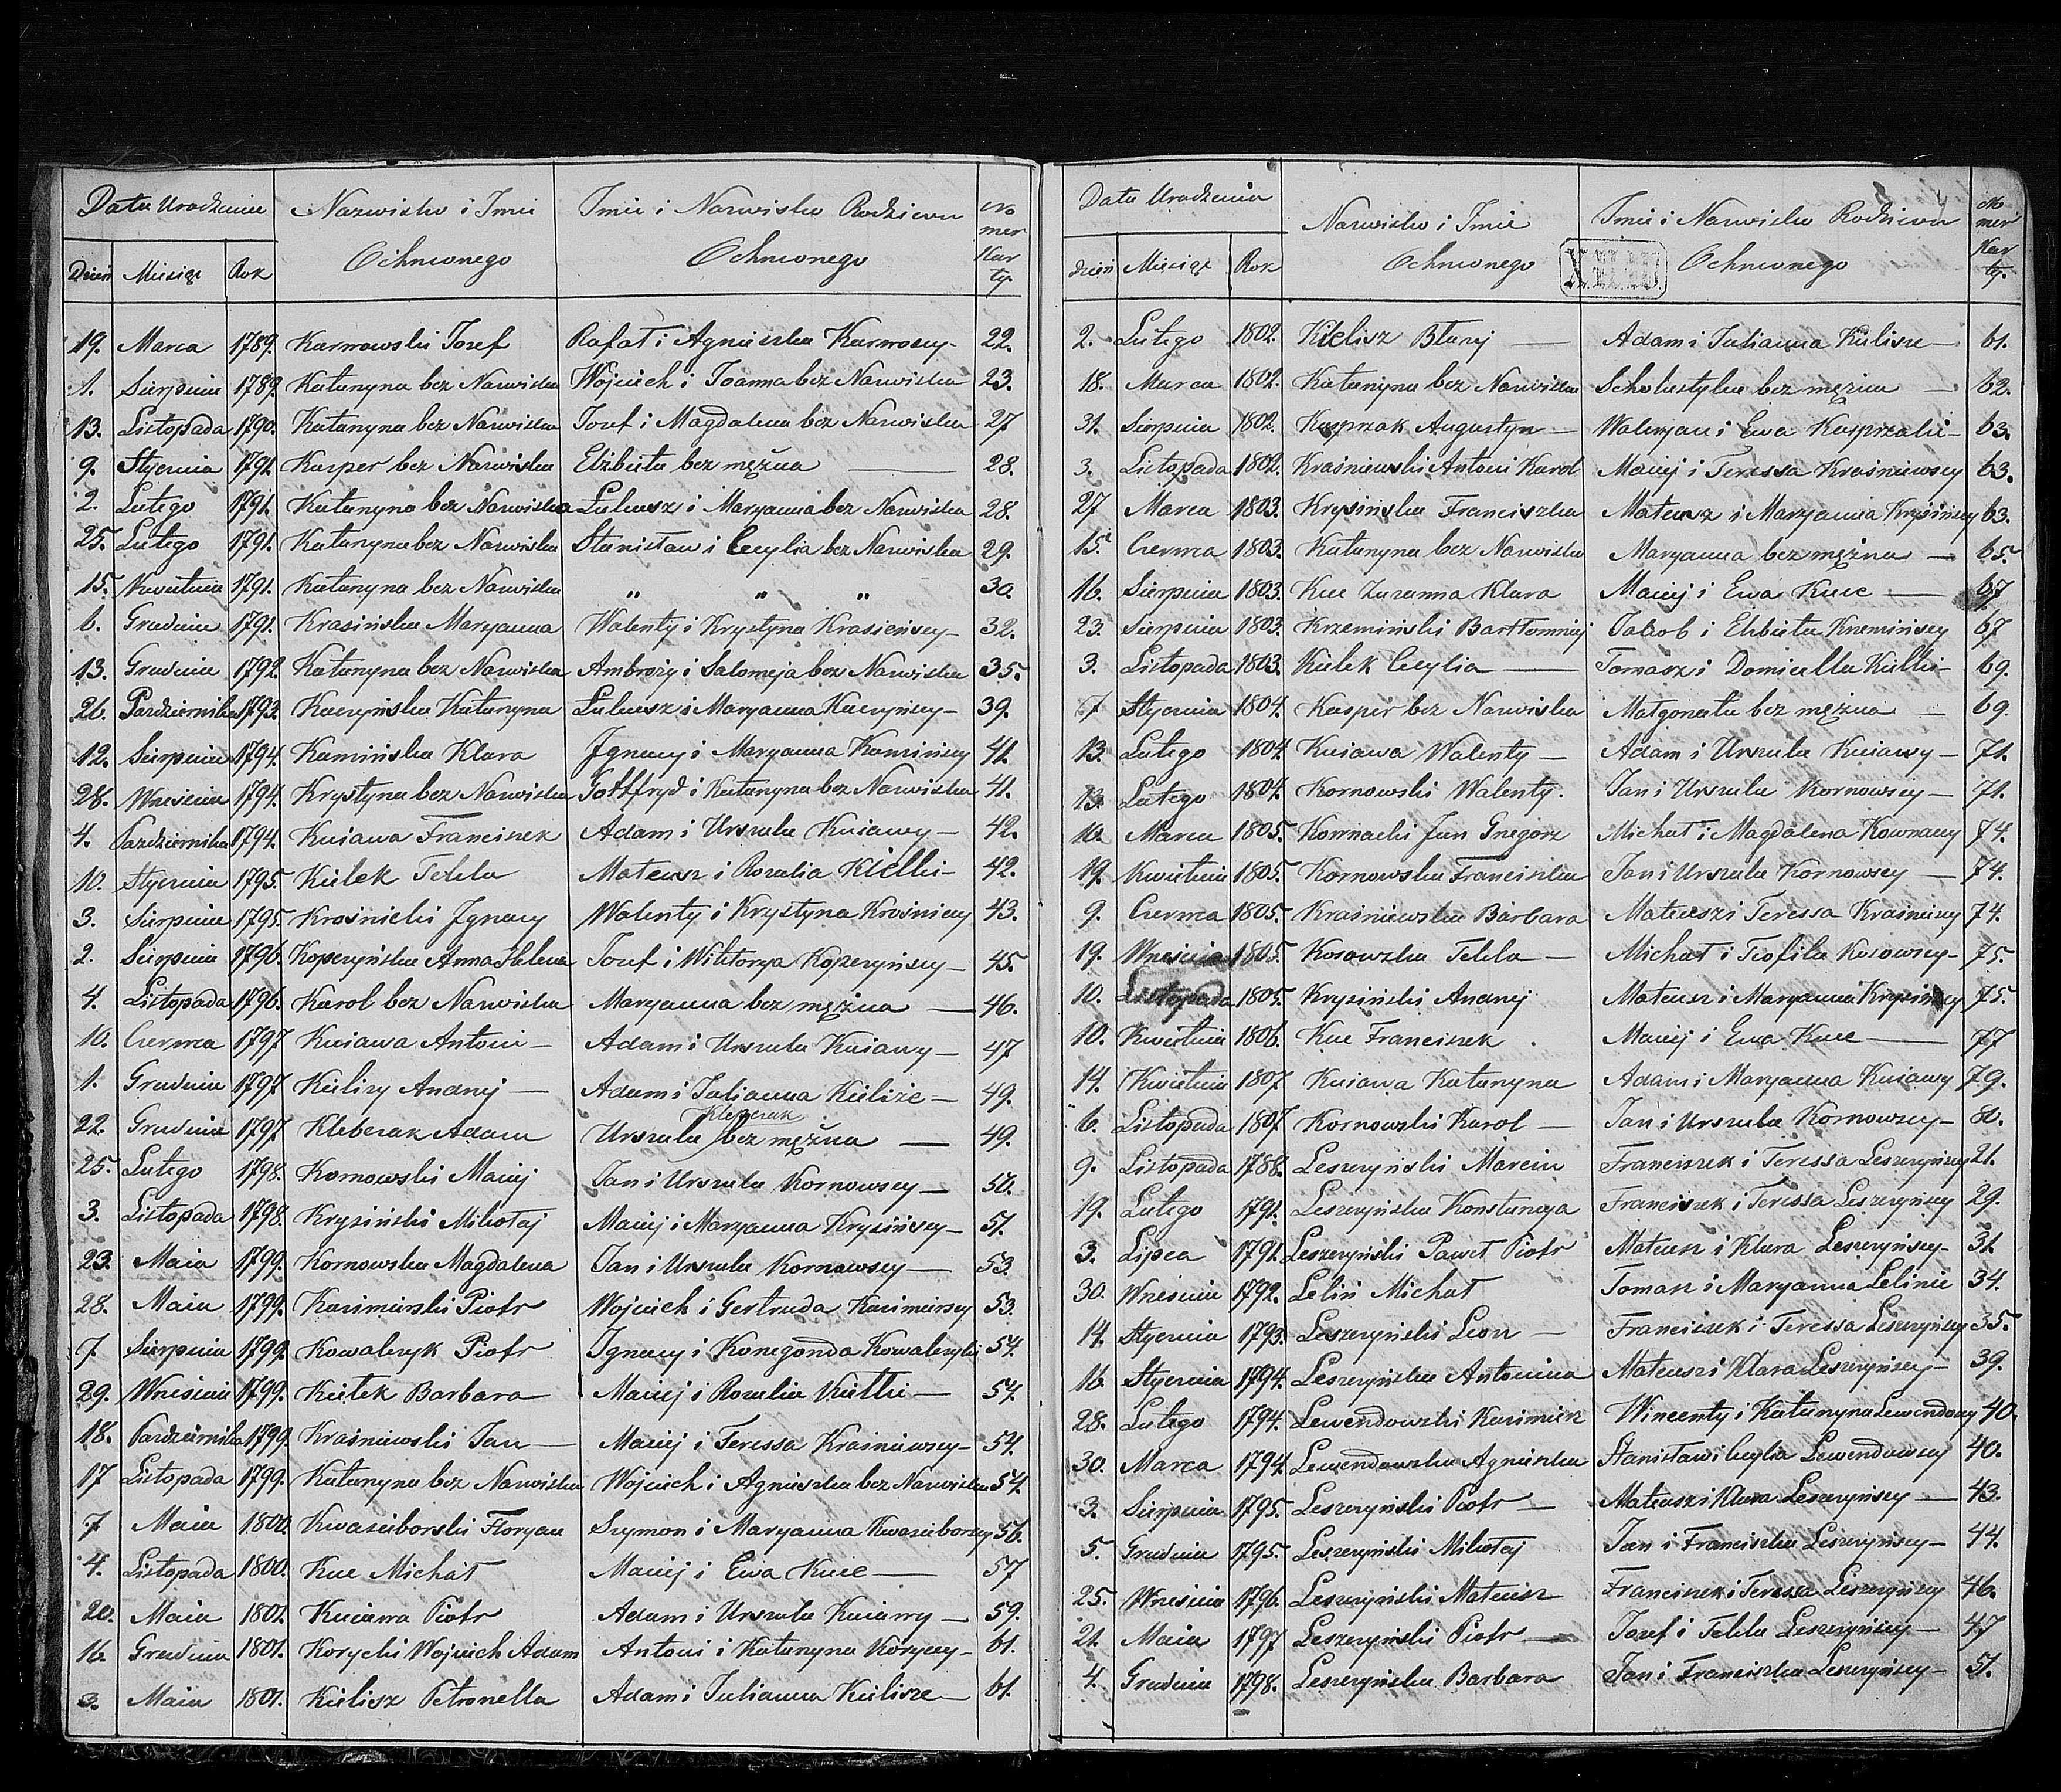 Data Urodzenia
Nazwisko i Imie
Ochrzconego
Imie i Nazwisko Rodzicow
Ochrzconego
No
mer
Kar
ty.
Dzień Miesiąc Rok
19. Marca 1789. Karnowski Jozef Rafał i Agnieszka Karnowscy- 22.
1. Sierpnia 1789. Katarzyna bez Nazwiska Wojciech i Joanna bez Nazwiska 23.
13. Listopada 1790. Katarzyna bez Nazwiska Jozef i Magdalena bez Nazwiska 27
9. Stycznia 1791. Kasper bez Nazwiska Elżbieta bez mężna 28.
2. Lutego 1791. Katarzyna bez Nazwiska Łukasz i Maryanna bez Nazwiska 28.
25. Lutego 1791. Katarzyna bez Nazwiska Stanisław i Cecylia bez Nazwiska 29.
15. Kwietnia 1791. Katarzyna bez Nazwiska " " " 30.
6. Grudnia 1791. Krasińska Maryanna Walenty i Krystyna Krasieńscy- 32.
13. Grudnia 1792. Katarzyna bez Nazwiska Ambroży i Salomeja bez Nazwiska 35.
26. Pazdziernika 1793. Kaczyńska Katarzyna Łukasz i Maryanna Kaczyńscy- 39.
12. Sierpnia 1794. Kamińska Klara Jgnacy i Maryanna Kamińscy 41.
28. Wrzesnia 1794. Krystyna bez Nazwiska Gottfryd i Katarzyna bez Nazwiska 41.
4. Pazdziernika 1794. Kuiawa Franciszek Adam i Urszula Kuiawy- 42.
10. Stycznia 1795. Kielek Tekla Mateusz i Rozalia Kielki- 42.
3. Sierpnia 1795. Krośnicki Jgnacy Walenty i Krystyna Krośniccy 43.
2. Sierpnia 1796. Koperzyńska Anna Helena Jozef i Wiktorya Koperzyńscy- 45.
4. Listopada 1796. Karol bez Nazwiska Maryanna bez mężna 46.
10. Czerwca 1797 Kuiawa Antoni- Adam i Urszula Kuiawy- 47
1. Grudnia 1797 Kielisz Andrzej- Adam i Julianna Kielisze- 49.
22. Grudnia 1797 Kleberak Adam Urszula Kleberak bez mężna 49.
25. Lutego 1798. Kornowski Maciej Jan i Urszula Kornowscy- 50.
3. Listopada 1798. Krysiński Mikołaj Maciej i Maryanna Krysińscy- 51.
23. Maia 1799. Kornowska Magdalena Jan i Urszula Kornowscy- 53.
28. Maia 1799. Kazimirski Piotr Wojciech i Gertruda Kazimirscy 53.
7 Sierpnia 1799. Kowalczyk Piotr Jgnacy i Konegonda Kowalczyki 54.
29. Wrzesnia 1799. Kiełek Barbara- Maciej i Rozalia Kiełki- 54.
18. Pazdziernika 1799. Kraśniewski Jan- Maciej i Teressa Kraśniewscy- 54.
17 Listopada 1799. Katarzyna bez Nazwiska Wojciech i Agnieszka bez Nazwiska 54.
7 Maia 1800. Kwasieborski Floryan Szymon i Maryanna Kwasieborscy 56.
4. Listopada 1800. Kuc Michał Maciej i Ewa Kuce- 57
20. Maia 1801. Kuiawa Piotr Adam i Urszula Kuiawy- 59.
16 Grudnia 1801. Korycki Wojciech Adam Antoni i Katarzyna Koryccy- 61.
3. Maia 1801. Kielisz Petronella Adam i Julianna Kielisze- 61.
Data Urodzenia
Nazwisko i Imie
Ochrzconego
Imie i Nazwisko Rodzicow
Ochrzconego
No
mer
Kar
ty.
dzień Miesiąc Rok
2. Lutego 1802. Kielisz Błażej Adam i Julianna Kielisze- 61.
18. Marca 1802. Katarzyna bez Nazwiska Scholastyka bez mężna 62.
31. Sierpnia 1802. Kasprzak Augustyn- Waleryan i Ewa Kasprzaki- 63.
3. Listopada 1802. Kraśniewski Antoni Karol Maciej i Teressa Kraśniewscy 63.
27 Marca 1803. Krysińska Franciszka Mateusz i Maryanna Krysińscy 63.
15. Czerwca 1803. Katarzyna bez Nazwiska Maryanna bez mężna 65.
16. Sierpnia 1803. Kuc Zuzanna Klara Maciej i Ewa Kuce- 67
23. Sierpnia 1803. Krzemiński Bartłomiej Jakob i Elzbieta Krzemińscy 67
3. Listopada 1803. Kielek Cecylia Tomasz i Domicella Kielki- 69.
7 Stycznia 1804. Kasper bez Nazwiska Małgorzata bez mężna 69.
13. Lutego 1804. Kuiawa Walenty- Adam i Urszula Kuiawy- 71.
13. Lutego 1804. Kornowski Walenty. Jan i Urszula Kornowscy- 71.
10. Marca 1805. Kownacki Jan Grzegorz Michał i Magdalena Kownaccy 74.
19. Kwietnia 1805. Kornowska Franciszka Jan i Urszula Kornowscy- 74.
9. Czerwca 1805. Kraśniewska Barbara Mateusz i Teressa Kraśniewscy 74.
19. Wrzesnia 1805. Kosowska Tekla- Michał i Teofila Kosowscy- 75.
10. Listopada 1805. Krysiński Andrzej Mateusz i Maryanna Krysińscy 75.
10. Kwietnia 1806. Kuc Franciszek Maciej i Ewa Kuce- 77
14. Kwietnia 1807 Kuiawa Katarzyna Adam i Maryanna Kuiawy 79.
6. Listopada 1807. Kornowski Karol- Jan i Urszula Kornowscy- 80.
9. Listopada 1788. Leszczyński Marcin Franciszek i Teressa Leszczyńscy 21.
19. Lutego 1791. Leszczyńska Konstancya Franciszek i Teressa Leszczyńscy 29.
3. Lipca 1791. Leszczyński Paweł Piotr Mateusz i Klara Leszczyńscy- 31.
30. Wrzesnia 1792. Lelin Michał Tomasz i Maryanna Lelinie 34.
14. Stycznia 1793. Leszczyński Leon- Franciszek i Teressa Leszczyńscy 35.
16 Stycznia 1794. Leszczyńska Antonina Mateusz i Klara Leszczyńscy- 39.
28. Lutego 1794. Lewendowski Kazimierz Wincenty i Katarzyna Lewendowscy 40.
30. Marca 1794. Lewendowska Agnieszka Stanisław i Cecylia Lewendowscy 40.
3. Sierpnia 1795. Leszczyński Piotr- Mateusz i Klara Leszczyńscy- 43.
5. Grudnia 1795. Leszczyński Mikołaj Jan i Franciszka Leszczyńscy- 44.
25. Wrzesnia 1796. Leszczyński Mateusz Franciszek i Teressa Leszczyńscy 46.
21. Maia 1797 Leszczyński Piotr- Jozef i Tekla Leszczyńscy- 47
4. Grudnia 1798. Leszczyńska Barbara Jan i Franciszka Leszczyńscy- 51.